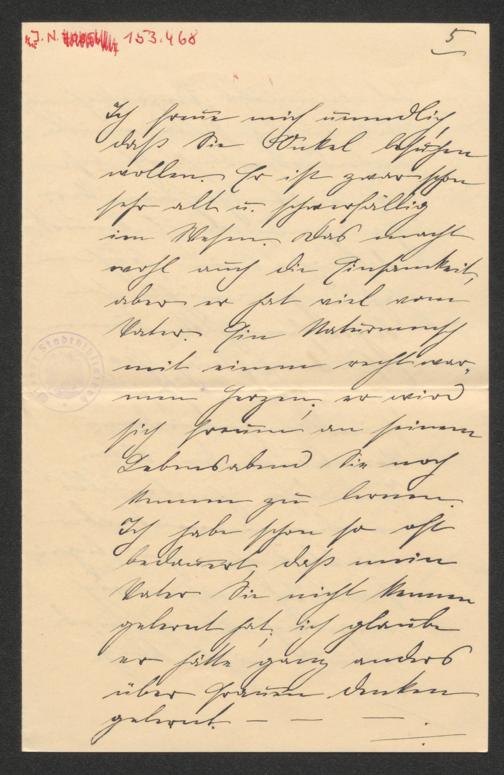 J. N. 153.468
5
Ich freue mich unendlich,
daß Sie Onkel besuchen
wollen. Er ist zwar schon
sehr alt u. schwerfällig
im Wesen. Das macht
wohl auch die Einsamkeit,
aber er hat viel vom
Vater. Ein Naturmensch
mit einem recht war-
men Herzen; er wird
sich freuen an seinem
Lebensabend Sie noch
kennen zu lernen.
Ich habe schon so oft
bedauert, daß mein
Vater Sie nicht kennen
gelernt hat; ich glaube
er hätte ganz anders
über Frauen denken
gelernt. — — —